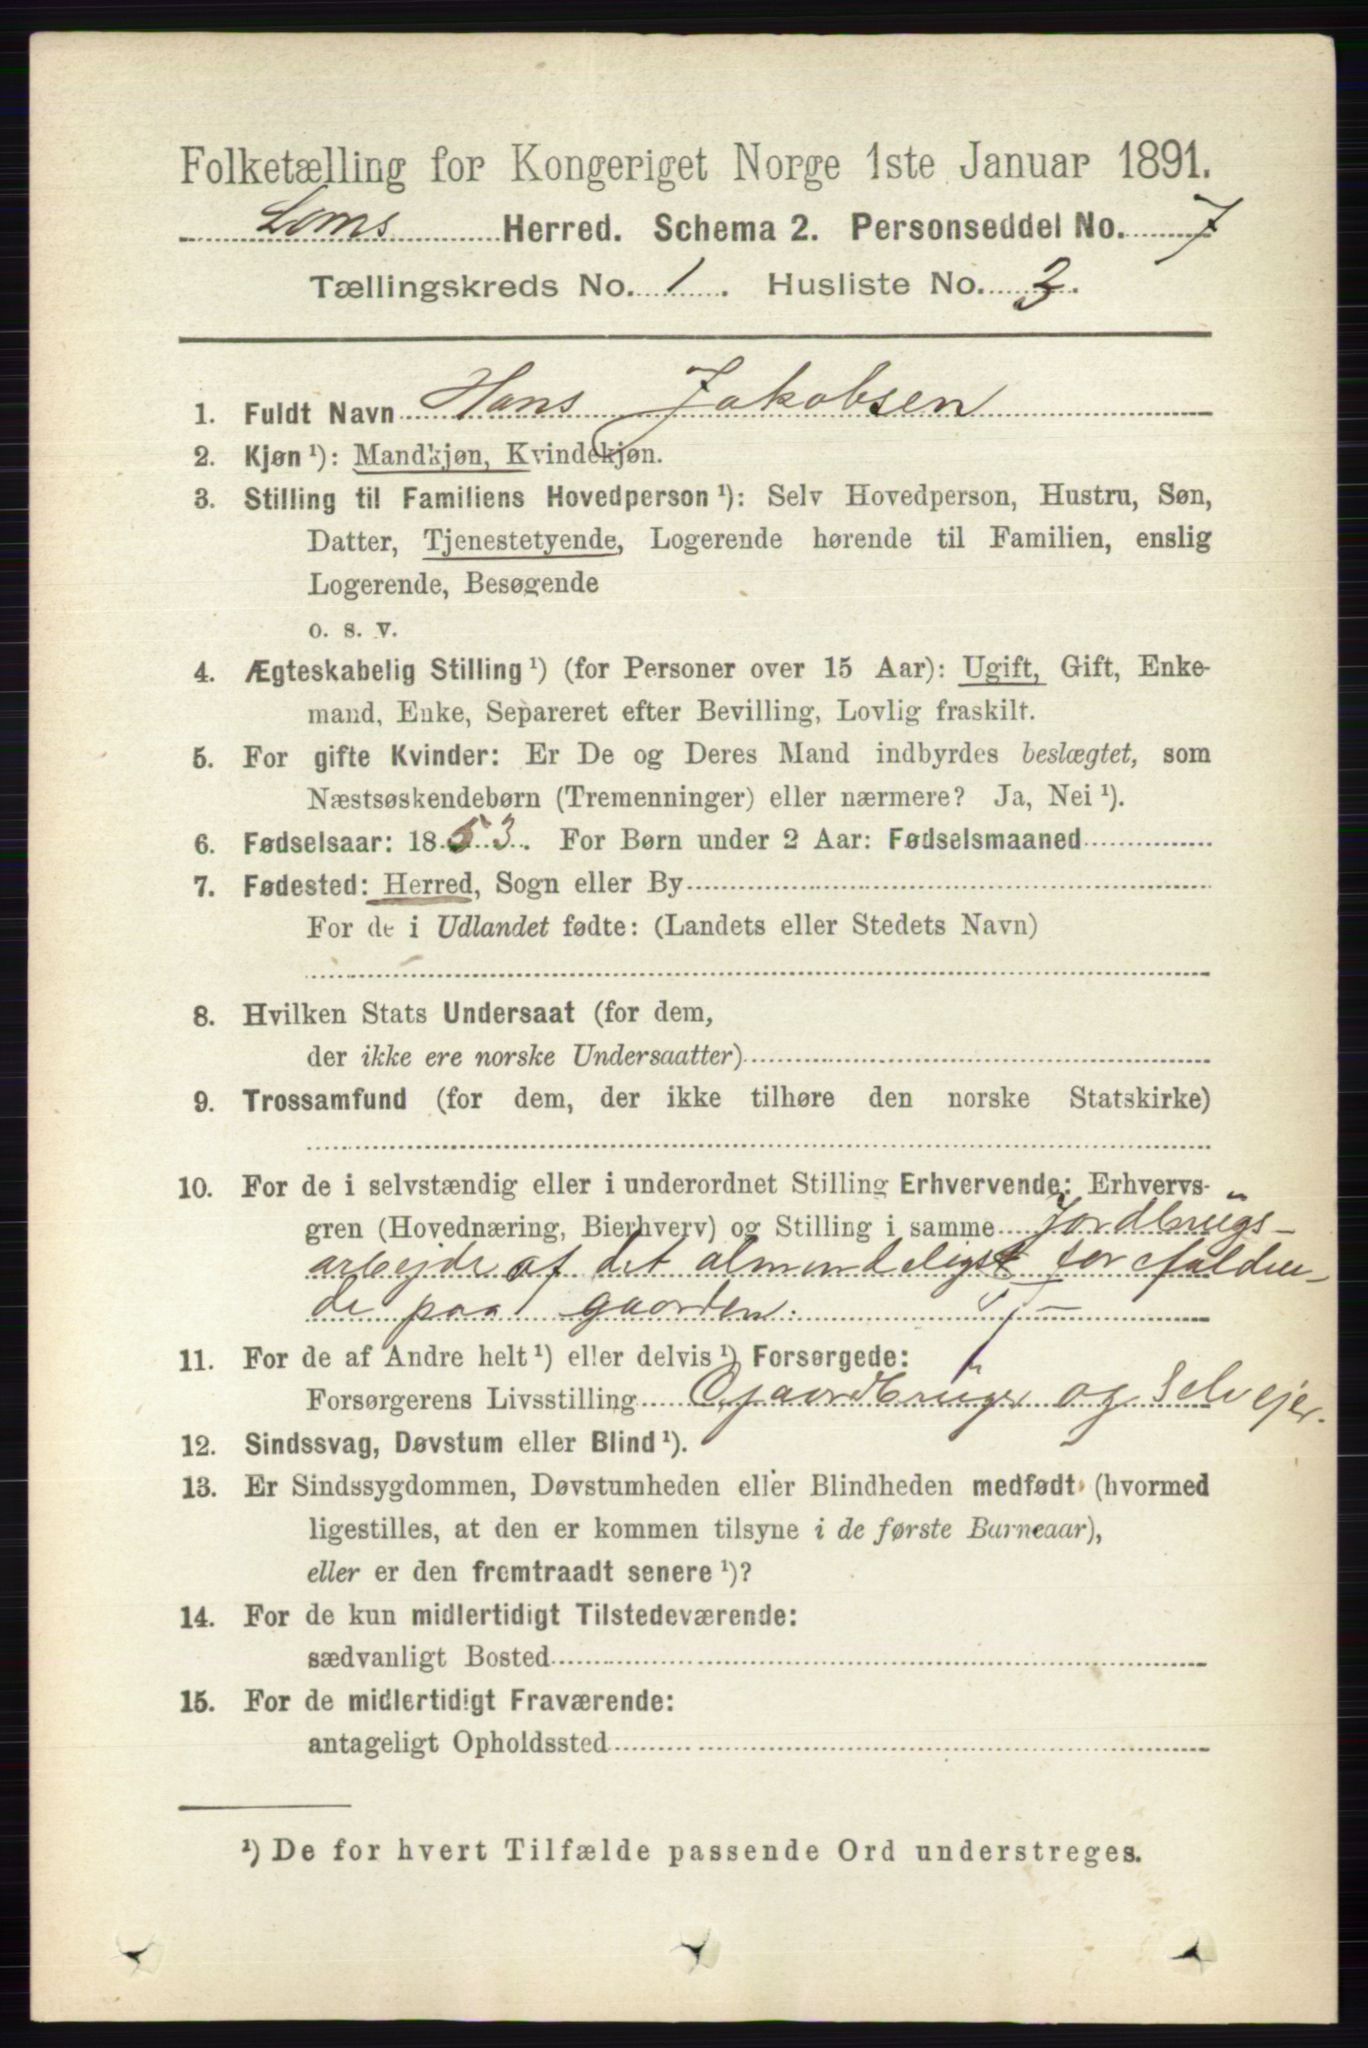 Folketælling for Kongeriget Norge 1ste Januar 1891.
Loms Herred. Schema 2. Personseddel No. 7
Tællingskreds No. 1. Husliste No. 3.
1. Fuldt Navn Hans Jakobsen
2. Kjøn ¹): Mandkjøn, Kvindekjøn.
3. Stilling til Familiens Hovedperson ¹): Selv Hovedperson, Hustru, Søn,
Datter, Tjenestetyende, Logerende hørende til Familien, enslig
Logerende, Besøgende
o. s. v.
4. Ægteskabelig Stilling ¹) (for Personer over 15 Aar): Ugift, Gift, Enke-
mand, Enke, Separeret efter Bevilling, Lovlig fraskilt.
5. For gifte Kvinder: Er De og Deres Mand indbyrdes beslægtet, som
Næstsøskendebørn (Tremenninger) eller nærmere? Ja, Nei ¹).
6. Fødselsaar: 1853. For Børn under 2 Aar: Fødselsmaaned
7. Fødested: Herred, Sogn eller By
For de i Udlandet fødte: (Landets eller Stedets Navn)
8. Hvilken Stats Undersaat (for dem,
der ikke ere norske Undersaatter)
9. Trossamfund (for dem, der ikke tilhøre den norske Statskirke)
10. For de i selvstændig eller i underordnet Stilling Erhvervende: Erhvervs-
gren (Hovednæring, Bierhverv) og Stilling i samme Jordbrugs-
arbejde af det almindeligst forefalden-
de paa gaarden.
11. For de af Andre helt ¹) eller delvis ¹) Forsørgede:
Forsørgerens Livsstilling Gaardbruger og Selvejer.
12. Sindssvag, Døvstum eller Blind ¹).
13. Er Sindssygdommen, Døvstumheden eller Blindheden medfødt (hvormed
ligestilles, at den er kommen tilsyne i de første Barneaar),
eller er den fremtraadt senere ¹)?
14. For de kun midlertidigt Tilstedeværende:
sædvanligt Bosted
15. For de midlertidigt Fraværende:
antageligt Opholdssted
¹) De for hvert Tilfælde passende Ord understreges.